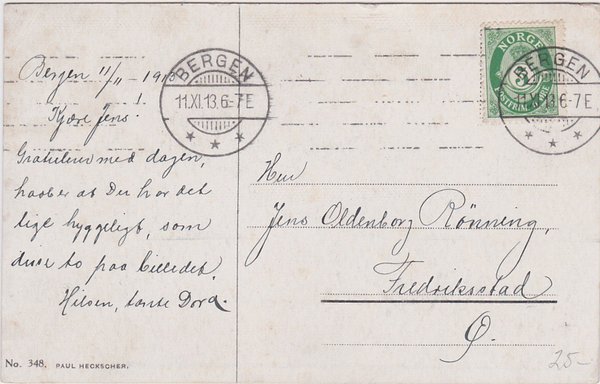 Bergen 11/11 1913
Kjære Jens!
Gratulerer med dagen,
haaber at Du har det
lige hyggeligt, som
disse to paa billedet.
Hilsen, tante Dora.
No. 348. PAUL HECKSCHER.
BERGEN
11.XI.13.6-7E
NORGE
5
BERGEN
11.XI.13.6-7E
Herr
Jens Oldenborg Rønning,
Fredriksstad
Ø.
25-